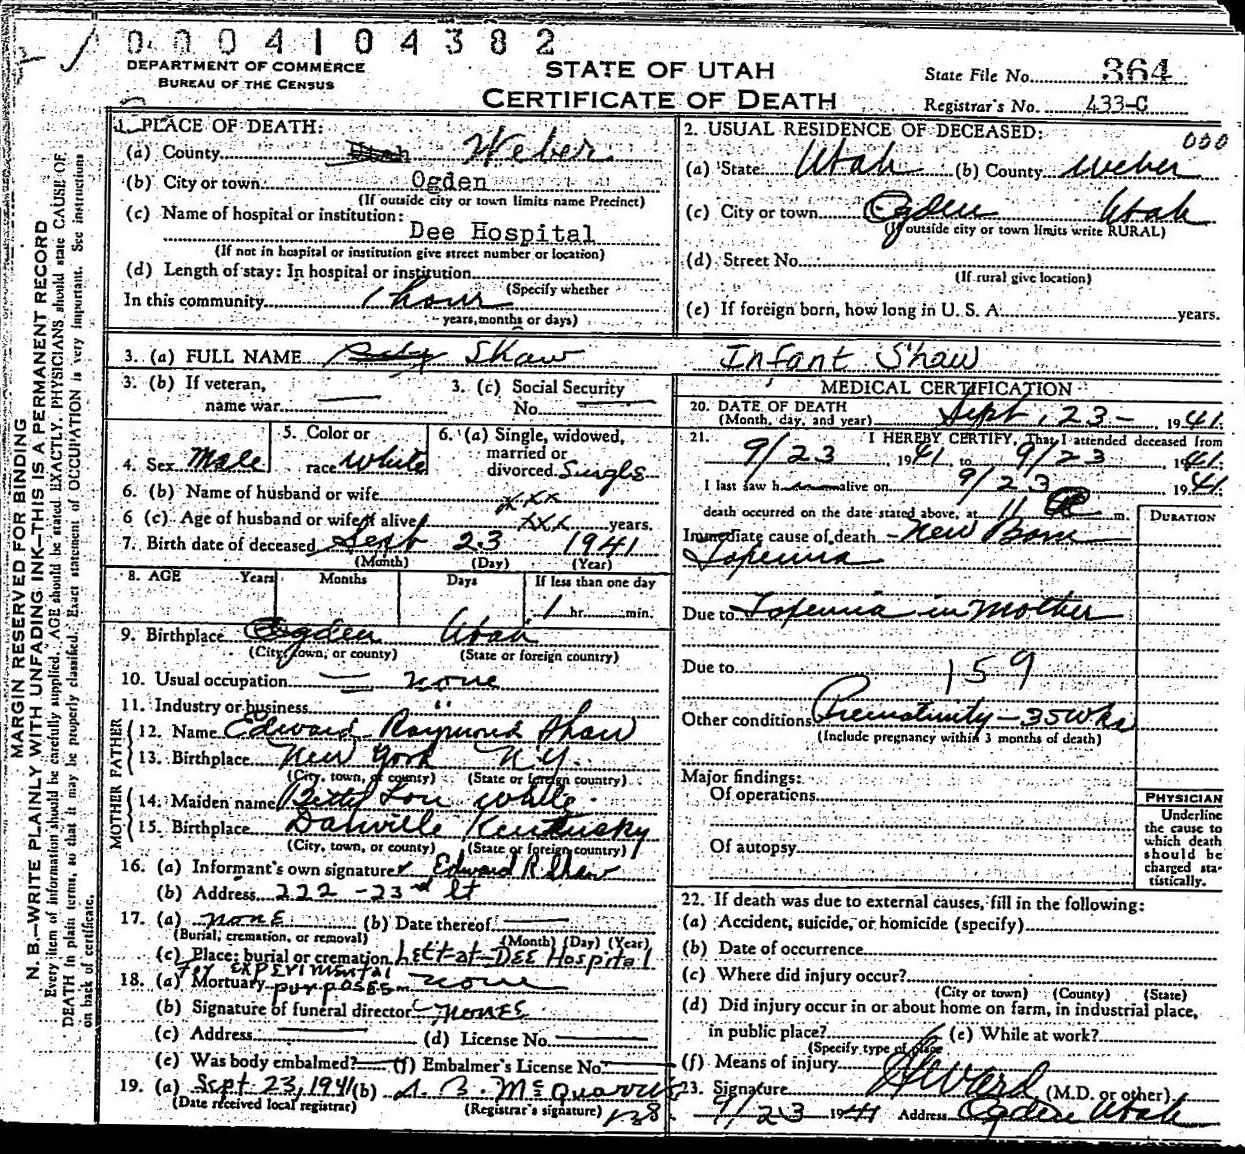 0004104382
DEPARTMENT OF COMMERCE
BUREAU OF THE CENSUS
STATE OF UTAH
CERTIFICATE OF DEATH
State File No. 364
Registrar's No. 433-C
MARGIN RESERVED FOR BINDING
N. B.—WRITE PLAINLY WITH UNFADING INK—THIS IS A PERMANENT RECORD
Every item of information should be carefully supplied. AGE should be stated EXACTLY. PHYSICIANS should state CAUSE OF
DEATH in plain terms, so that it may be properly classified. Exact statement of OCCUPATION is very important. See instructions
on back of certificate.
1. PLACE OF DEATH:
(a) County Utah Weber
(b) City or town Ogden
(If outside city or town limits name Precinct)
(c) Name of hospital or institution:
Dee Hospital
(If not in hospital or institution give street number or location)
(d) Length of stay: In hospital or institution
(Specify whether
In this community 1 hour
years, months or days)
2. USUAL RESIDENCE OF DECEASED:
000
(a) State Utah (b) County Weber
(c) City or town Ogden Utah
(If outside city or town limits write RURAL)
(d) Street No.
(If rural give location)
(e) If foreign born, how long in U. S. A. years.
3. (a) FULL NAME Baby Shaw Infant Shaw
3. (b) If veteran,
name war
3. (c) Social Security
No.
4. Sex Male
5. Color or
race White
6. (a) Single, widowed,
married or
divorced Single
6. (b) Name of husband or wife xxx
6 (c) Age of husband or wife if alive xxx years.
7. Birth date of deceased Sept 23 1941
(Month) (Day) (Year)
8. AGE Years Months Days If less than one day
1 hr. min.
9. Birthplace Ogden Utah
(City, town, or county) (State or foreign country)
10. Usual occupation none
11. Industry or business "
FATHER
12. Name Edward Raymond Shaw
13. Birthplace New York N.Y.
(City, town, or county) (State or foreign country)
MOTHER
14. Maiden name Betty Lou White
15. Birthplace Danville Kentucky
(City, town, or county) (State or foreign country)
16. (a) Informant's own signature Edward R Shaw
(b) Address 222 - 23rd St
17. (a) none (b) Date thereof
(Burial, cremation, or removal) (Month) (Day) (Year)
(c) Place: burial or cremation Left at DEE Hospital
for experimental
18. (a) Mortuary purposes none
(b) Signature of funeral director none
(c) Address (d) License No.
(e) Was body embalmed? (f) Embalmer's License No.
19. (a) Sept 23, 1941 (b) McQuarrie
(Date received local registrar) (Registrar's signature)
MEDICAL CERTIFICATION
20. DATE OF DEATH
(Month, day, and year) Sept. 23 - 1941
21. I HEREBY CERTIFY, That I attended deceased from
9/23, 1941 to 9/23 1941
I last saw h alive on 9/23 1941
death occurred on the date stated above, at 11 m.
DURATION
Immediate cause of death New Born
Toxemia
Due to Toxemia in Mother
Due to 159
Other conditions Prematurity - 35 wks
(Include pregnancy within 3 months of death)
Major findings:
Of operations
Of autopsy
PHYSICIAN
Underline
the cause to
which death
should be
charged sta-
tistically.
22. If death was due to external causes, fill in the following:
(a) Accident, suicide, or homicide (specify)
(b) Date of occurrence
(c) Where did injury occur?
(City or town) (County) (State)
(d) Did injury occur in or about home on farm, in industrial place,
in public place? (e) While at work?
(Specify type of place
(f) Means of injury
23. Signature Ward (M.D. or other)
9/23 1941 Address Ogden Utah